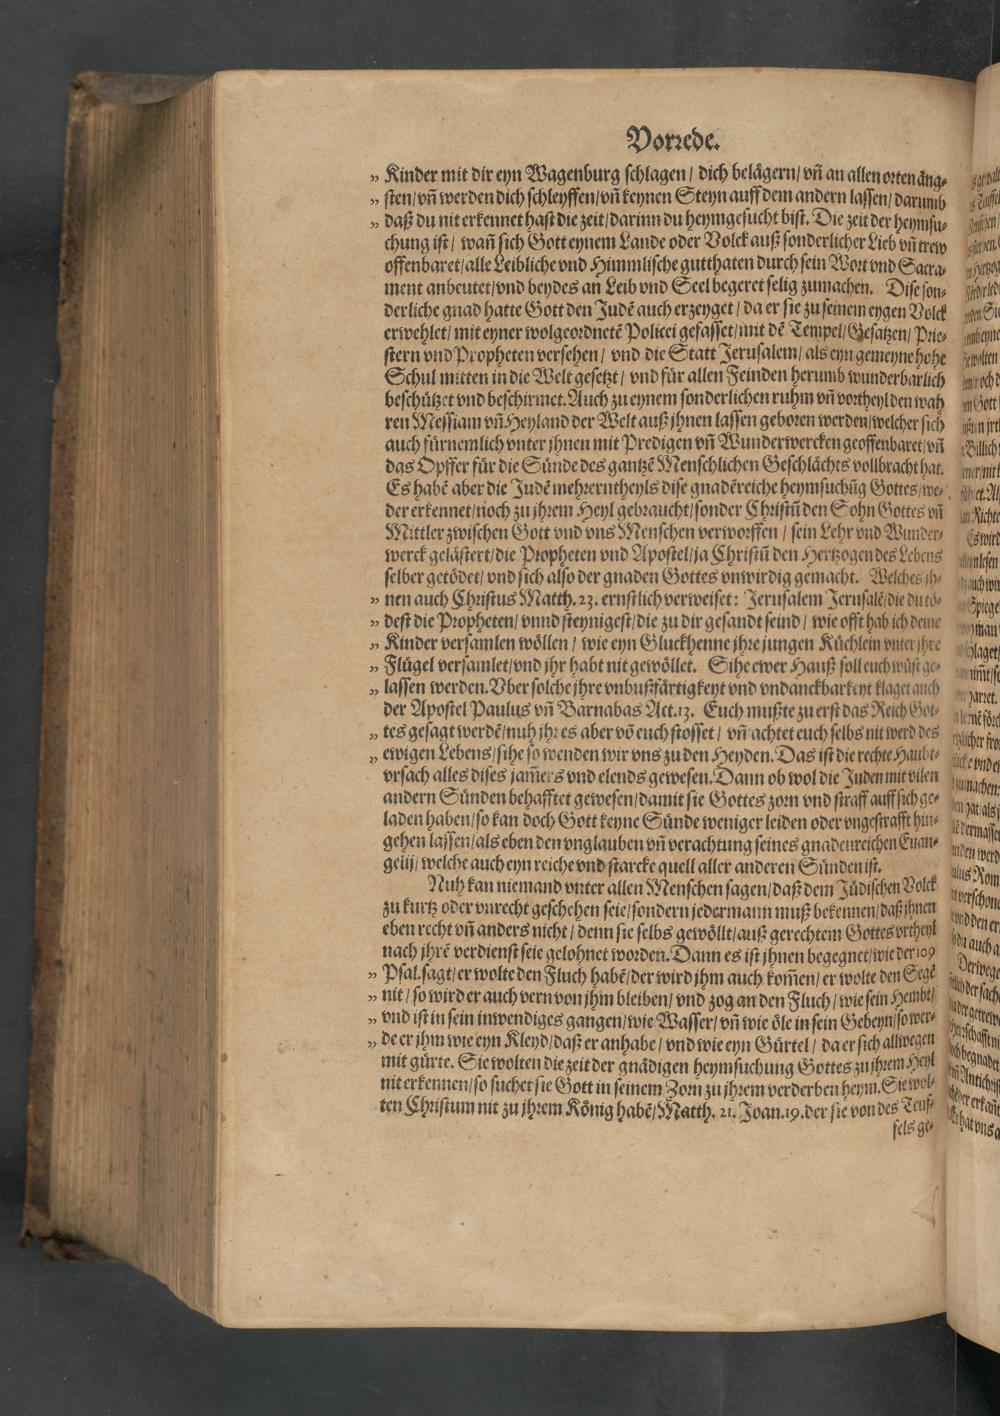 Vorrede.
„ Kinder mit dir eyn Wagenburg schlagen / dich belägern / vñ an allen orten äng⸗
„ sten / vñ werden dich schleyffen / vñ keynen Steyn auff dem andern lassen / darumb
„ daß du nit erkennet hast die zeit / darinn du heymgesucht bist. Die zeit der heymsu⸗
chung ist / wañ sich Gott eynem Lande oder Volck auß sonderlicher Lieb vñ trew
offenbaret / alle Leibliche vnd Himmlische gutthaten durch sein Wort vnd Sacra⸗
ment anbeutet / vnd beydes an Leib vnd Seel begeret selig zumachen. Dise son⸗
derliche gnad hatte Gott den Judẽ auch erzeyget / da er sie zu seinem eygen Volck
erwehlet / mit eyner wolgeordnetẽ Policei gefasset / mit dẽ Tempel / Gesatzen / Prie⸗
stern vnd Propheten versehen / vnd die Statt Jerusalem / als eyn gemeyne hohe
Schul mitten in die Welt gesetzt / vnd für allen Feinden herumb wunderbarlich
beschützet vnd beschirmet. Auch zu eynem sonderlichen ruhm vñ vortheyl den wah
ren Messiam vñ Heyland der Welt auß jhnen lassen geboren werden / welcher sich
auch fürnemlich vnter jhnen mit Predigen vñ Wunderwercken geoffenbaret / vñ
das Opffer für die Sünde des gantzẽ Menschlichen Geschlächts vollbracht hat.
Es habẽ aber die Judẽ mehrerntheyls dise gnadẽreiche heymsuchũg Gottes / we⸗
der erkennet / noch zu jhrem Heyl gebraucht / sonder Christũ den Sohn Gottes vñ
Mittler zwischen Gott vnd vns Menschen verworffen / sein Lehr vnd Wunder⸗
werck gelästert / die Propheten vnd Apostel / ja Christũ den Hertzogen des Lebens
selber getödet / vnd sich also der gnaden Gottes vnwirdig gemacht. Welches jh⸗
„ nen auch Christus Matth. 23. ernstlich verweiset: Jerusalem Jerusalẽ / die du tö⸗
„ dest die Propheten / vnnd steynigest / die zu dir gesandt seind / wie offt hab ich deine
„ Kinder versamlen wöllen / wie eyn Gluckhenne jhre jungen Küchlein vnter jhre
„ Flügel versamlet / vnd jhr habt nit gewöllet. Sihe ewer Hauß soll euch wüst ge⸗
„ lassen werden. Vber solche jhre vnbußfärtigkeyt vnd vndanckbarkeyt klaget auch
der Apostel Paulus vñ Barnabas Act. 13. Euch mußte zu erst das Reich Got⸗
„ tes gesagt werdẽ / nuh jhr es aber võ euch stosset / vñ achtet euch selbs nit werd des
„ ewigen Lebens / sihe so wenden wir vns zu den Heyden. Das ist die rechte Haubt⸗
vrsach alles dises jam̃ers vnd elends gewesen. Dann ob wol die Juden mit vilen
andern Sünden behafftet gewesen / damit sie Gottes zorn vnd straff auff sich ge⸗
laden haben / so kan doch Gott keyne Sünde weniger leiden oder vngestrafft hin⸗
gehen lassen / als eben den vnglauben vñ verachtung seines gnadenreichen Euan⸗
gelij / welche auch eyn reiche vnd starcke quell aller anderen Sünden ist.
Nuh kan niemand vnter allen Menschen sagen / daß dem Jüdischen Volck
zu kurtz oder vnrecht geschehen seie / sondern jedermann muß bekennen / daß jhnen
eben recht vñ anders nicht / denn sie selbs gewöllt / auß gerechtem Gottes vrtheyl
nach jhrẽ verdienst seie gelohnet worden. Dann es ist jhnen begegnet / wie der 109
„ Psal. sagt / er wolte den Fluch habẽ / der wird jhm auch kom̃en / er wolte den Segẽ
„ nit / so wird er auch vern von jhm bleiben / vnd zog an den Fluch / wie sein Hembt /
„ vnd ist in sein inwendiges gangen / wie Wasser / vñ wie öle in sein Gebeyn / so wer⸗
„ de er jhm wie eyn Kleyd / daß er anhabe / vnd wie eyn Gürtel / da er sich allwegen
mit gürte. Sie wolten die zeit der gnädigen heymsuchung Gottes zu jhrem Heyl
nit erkennen / so suchet sie Gott in seinem Zorn zu jhrem verderben heym. Sie wol⸗
ten Christum nit zu jhrem König habẽ / Matth. 21. Joan. 19. der sie von des Teuf⸗
fels ge⸗